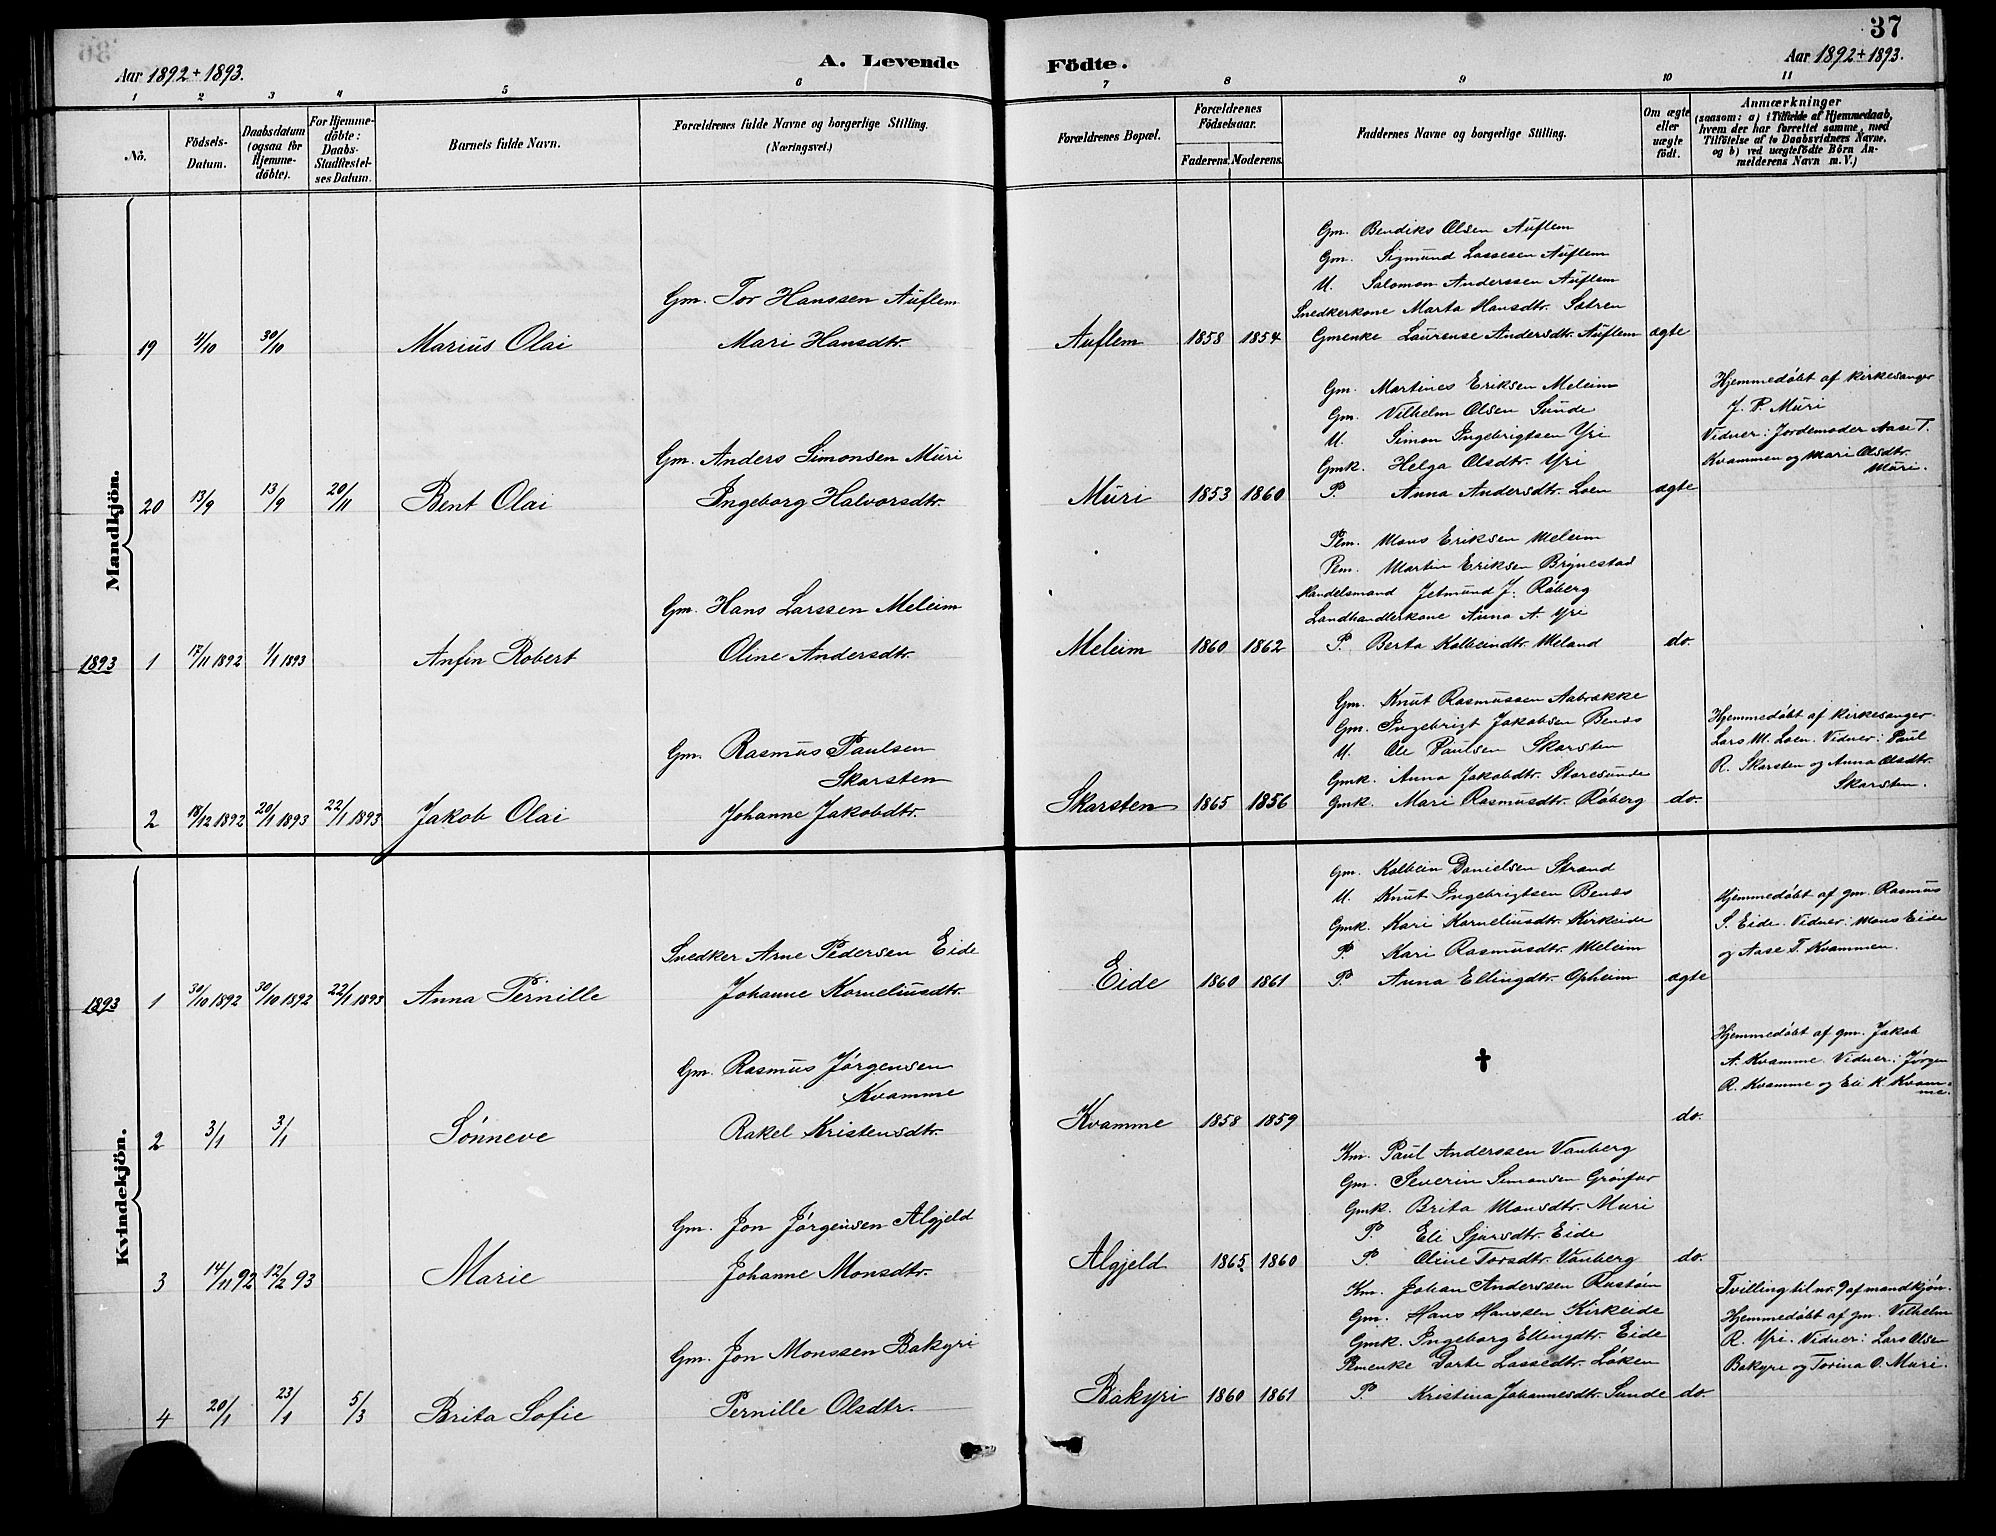 37
Aar 1892 + 1893.
A. Levende Födte.
Aar 1892 + 1893.
1 2 3 4 5 6 7 8 9 10 11
No.
Födsels-Datum.
Daabsdatum (ogsaa for Hjemme-döbte).
For Hjemme-döbte: Daabs-Stadfæstel-ses Datum.
Barnets fulde Navn.
Forældrenes fulde Navne og borgerlige Stilling.
(Næringsvei.)
Forældrenes Bopæl.
Forældrenes Födselsaar.
Faderens. Moderens.
Faddernes Navne og borgerlige Stilling.
Om ægte eller uægte födt.
Anmærkninger
(saasom: a) i Tilfælde af Hjemmedaab, hvem der har forrettet samme, med Tilföielse af to Daabsvidners Navne, og b) ved uægtefödte Börn An-melderens Navn m. V.)
Mandkjön.
Gm. Bendiks Olsen Auflem
Gm. Sigmund Lassesen Auflem
U. Salomon Anderssen Auflem
Snedkerkone Marta Hansdtr. Sætren
Gm. Tor Hanssen Auflem
19 4/10 30/10 Marius Olai Mari Hansdtr. Auflem 1858 1854 Gmenke Laurense Andersdtr. Auflem ægte
Gm. Martines Eriksen Meleim
Gm. Vilhelm Olsen Sunde
U. Simon Ingebrigtsen Yri
Gmk. Helga Olsdtr. Yri
Gm. Anders Simonsen Muri
20 13/9 13/9 20/11 Bent Olai Ingeborg Halvorsdtr. Muri 1853 1860 P. Anna Andersdtr. Loen ægte
Hjemmedøbt af kirkesanger
J. P. Muri
Vidner: Jordemoder Aase T.
Kvammen og Mari Olsdtr.
Muri.
Pm. Mons Eriksen Meleim
Pm. Martin Eriksen Brynestad
Handelsmand Jetmund J. Røberg
Landhandlerkone Anna A. Yri
Gm. Hans Larssen Meleim
1893 1 17/11 1892 1/1 1893 Anfin Robert Oline Andersdtr. Meleim 1860 1862 P. Berta Kolbeindtr. Meland do.
Gm. Knut Rasmussen Aabrække
Gm. Ingebrigt Jakobsen Benes
U. Ole Paulsen Skarsten
Gmk. Anna Jakobdtr. Storesunde
Gm. Rasmus Paulsen
Skarsten
2 18/12 1892 20/1 1893 22/1 1893 Jakob Olai Johanne Jakobdtr. Skarsten 1865 1856 Gmk. Mari Rasmusdtr. Røberg do.
Hjemmedøbt af kirkesanger
Lars M. Loen. Vidner: Paul
R. Skarsten og Anna Olsdtr.
Skarsten.
Kvindekjön.
Gm. Kolbein Danielsen Strand
U. Knut Ingebrigtsen Benes
Gmk. Kari Korneliusdtr. Kirkeide
P. Kari Rasmusdtr. Meleim
Snedker Arne Pedersen Eide
1893 1 30/10 1892 30/10 1892 22/1 1893 Anna Pernille Johanne Korneliusdtr. Eide 1860 1861 P. Anna Ellingdtr. Opheim ægte
Hjemmedøbt af gm. Rasmus
S. Eide. Vidner: Mons Eide
og Aase T. Kvammen.
Gm. Rasmus Jørgensen
Kvamme
†
2 3/1 3/1 Sønneve Rakel Kristensdtr. Kvamme 1858 1859 do.
Hjemmedøbt af gm. Jakob
A. Kvamme. Vidner: Jørgen
R. Kvamme og Eli K. Kvam-
me.
Km. Paul Anderssen Vanberg
Gm. Severin Simonsen
Gmk. Brita Monsdtr. Muri
P. Eli Sjursdtr. Eide
Gm. Jon Jørgensen Algjeld
3 14/11 92 12/2 93 Marie Johanne Monsdtr. Algjeld 1865 1860 P. Oline Torsdtr. Vanberg do.
Km. Johan Anderssen Rustøen
Gm. Hans Hanssen Kirkeide
Gmk. Ingeborg Ellingdtr. Eide
Pmenke Dorte Lassedtr. Løken
Gm. Jon Monssen Bakyri
4 20/1 23/1 5/3 Brita Sofie Pernille Olsdtr. Bakyri 1860 1861 P. Kristina Johannesdtr. Sunde do.
Tvilling til nr. 9 af mandkjøn.
Hjemmedøbt af gm. Vilhelm
R. Yri. Vidner: Lars Olsen
Bakyri og Torina O. Muri.